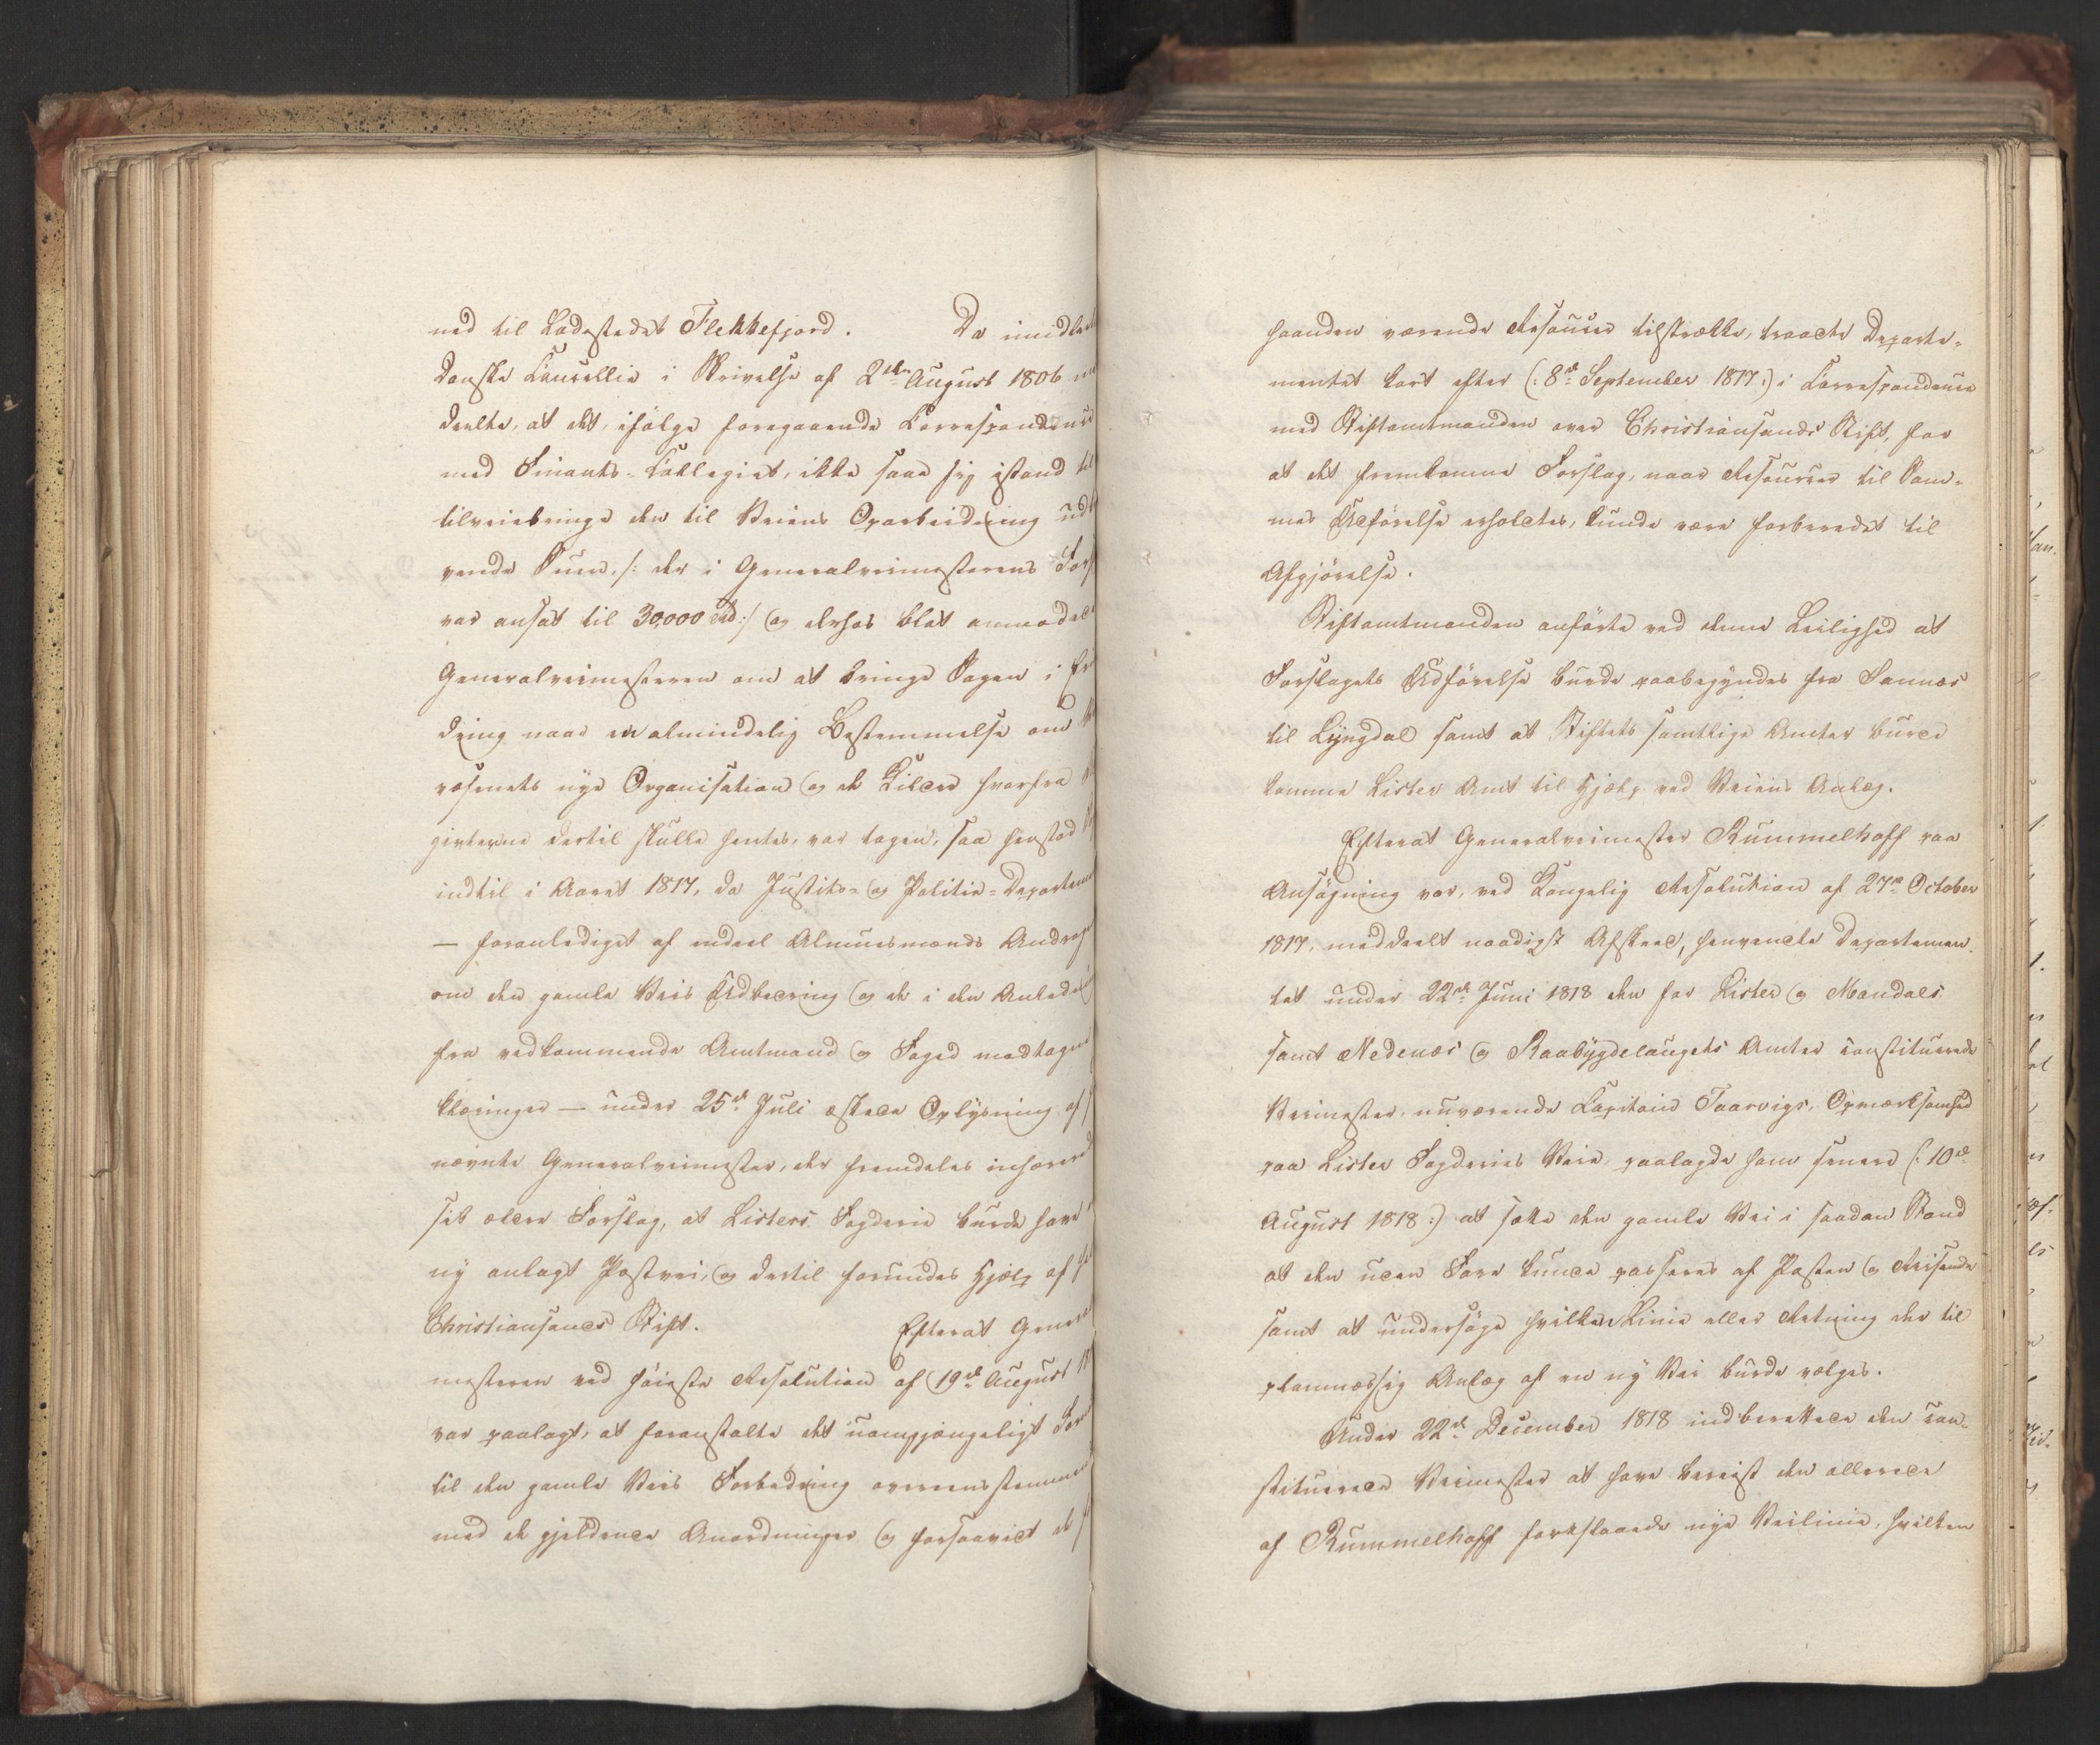 ned til Ladestedet Flekkefjord. Da imidle
danske Cancellie i Skrivelse af 2den August 1806 
deelte, at det, ifølge foregaaende Correspondence
med Finants-Collegiet, ikke saae sig istand til
tilveiebringe den til Veiens Oparbeidelse 
vende Sum, /: der i Generalveimesterens Fors
var ansat til 30,000 rd:/ og derhos blot anmodede
Generalveimesteren om at bringe Sagen i Er
dring naar en almindelig Bestemmelse om 
væsenets nye Organisation og de Kilder hvorfra 
gifterne dertil skulle hentes, var tagen, saa henstod
indtil i Aaret 1817, da Justits- og Politie-Departem
— foranlediget af endeel Almuesmænds Andrag
om den gamle Veis Udbedring og de i den Anledning
fra vedkommende Amtmand og Foged modtagne
klæringer — under 25d. Juli æskede Oplysning af
nævnte Generalveimester, der fremdeles inhærered
sit ældre Forslag, at Listers Fogderie burde have
ny anlagt Postvei, og dertil forundes Hjelp af 
Christiansands Stift. Efterat General
mesteren ved høieste Resolution af 19d. August 18
var paalagt, at foranstalte det uomgjængeligt 
til den gamle Veis Forbedring overeensstemmen
med de gjeldende Anordninger og forsaavidt de
haanden værende Resourcer tilstrække, traadte Departe-
mentet kort efter (: 8d. September 1817:) i Correspondence
med Stiftamtmanden over Christiansands Stift, for
at det fremkomne Forslag, naar Resourcer til Sam-
mes Udførelse erholdtes, kunde være forberedet til
Afgjørelse.
Stiftamtmanden anførte ved denne Leilighed at
Forslagets Udførelse burde paabegyndes fra 
til Lyngdal samt at Stiftets samtlige Amter burde
komme Lister Amt til Hjelp ved Veiens Anlæg.
Efterat Generalveimester Rummelhoff paa
Ansøgning var, ved Kongelig Resolution af 27de October
1817, meddeelt naadigst Afskeed, henvendte Departemen-
tet under 22d. Juni 1818 den for Lister og Mandals
samt Nedenæs og Raabygdelaugets Amter constituerede
Veimester, nuværende Capitain Taarvigs, Opmærksomhed
paa Lister Fogderies Veie, paalagde ham senere (: 10d.
August 1818:) at sætte den gamle Vei i saadan Stand
at den uden Fare kunde passeres af Posten og Reisende
samt at undersøge hvilken Linie eller Retning der til
planmæssig Anlæg af en ny Vei burde vælges.
Under 22d. December 1818 indberettede den con-
stituerede Veimester at have bereist den allerede
af Rummelhoff foreslaaede nye Veilinie, hvilken